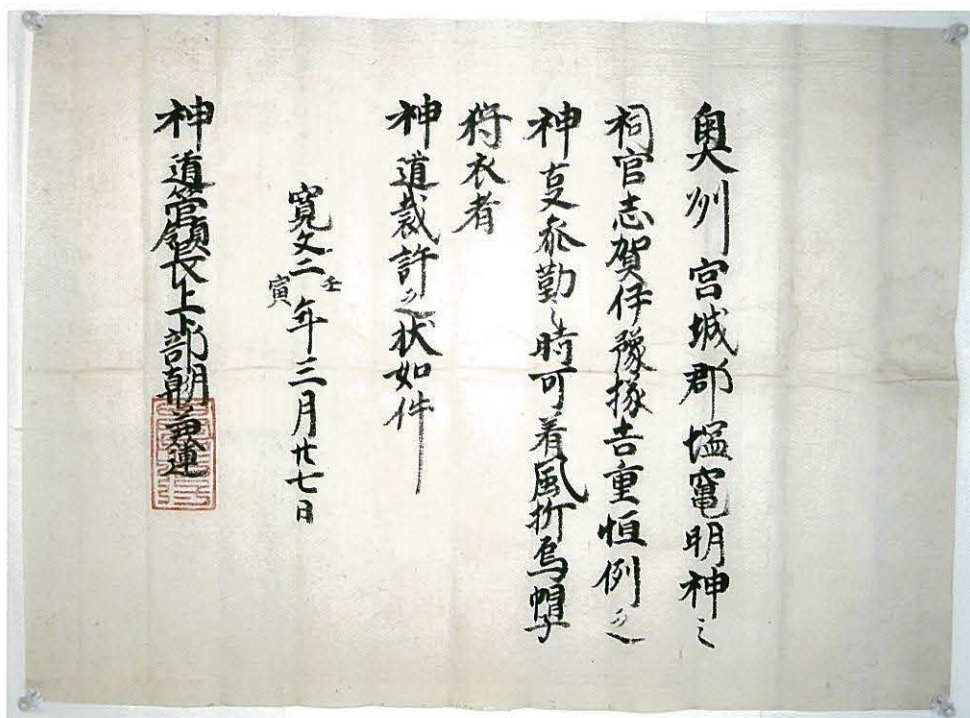 奥州宮城郡塩竃明神之
祠官志賀伊豫掾吉重恒例之
神事参勤之時可着風折烏帽子
狩衣者
神道裁許之状如件
寛文二壬寅年三月廿七日
神道管領長上卜部朝臣兼連